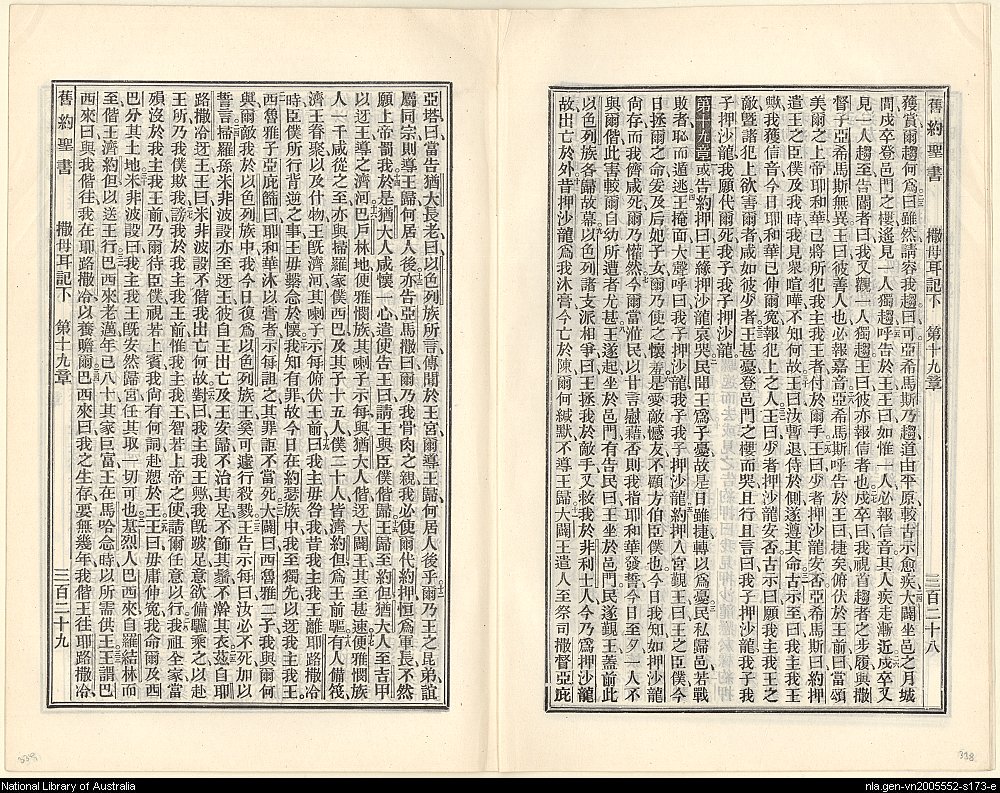 舊約聖書 撒母耳記下 第十九章 三百二十八
獲賞爾趨何爲曰雖然請容我趨曰可亞希馬斯乃趨道由平原較古示愈疾大闢坐邑之月城
間戍卒登邑門之樓遙見一人獨趨呼告於王王曰如惟一人必報信音其人疾走漸近戍卒又
見一人趨至告閽者曰我又觀一人獨趨王曰彼亦報信者也戍卒曰我視首趨者之步履與撒
督子亞希馬斯無異王曰彼善人也必報嘉音亞希馬斯呼告於王曰捷矣俯伏於王前曰當頌
美爾之上帝耶和華已將所犯我主我王者付於爾手王曰少者押沙龍安否亞希馬斯曰約押
遣王之臣僕及我時我見衆喧嘩不知何故王曰汝暫退侍於側遂遵其命古示至曰我主我王
歟我獲信音今日耶和華已伸爾寃報犯上之人王曰少者押沙龍安否古示曰願我主我王之
敵曁諸犯上欲害爾者咸如彼少者王甚憂登邑門之樓而哭且行且言曰我子押沙龍我子我
子押沙龍我願代爾死我子我子押沙龍
第十九章 或告約押曰王緣押沙龍哀哭民聞王爲子憂故是日雖捷轉以爲憂民私歸邑若戰
敗者恥而遁逃王掩面大聲呼曰我子押沙龍我子我子押沙龍約押入宮覲王曰王之臣僕今
日拯爾之命爰及后妃子女爾乃使之懷羞是愛敵憾友不顧方伯臣僕也今日我知如押沙龍
尙存而我儕咸死爾乃懽然今爾當滙民以甘言慰藉否則我指耶和華發誓今日至夕一人不
與爾偕此害較爾自幼所遭者尤甚王遂起坐於邑門有告民曰王坐於邑門民遂覲王蓋前此
以色列族各歸故幕以色列諸支派相爭曰王拯我於敵手又救我於非利士人今乃爲押沙龍
故出亡於外昔押沙龍爲我沐膏今亡於陳爾何緘默不導王歸大闢王遣人至祭司撒督亞庇
亞塔曰當告猶大長老曰以色列族所言傳聞於王宮爾導王歸何居人後乎爾乃王之昆弟誼
屬同宗則導王歸何居人後亦告亞馬撒曰爾乃我骨肉之親我必使爾代約押恒爲軍長不然
願上帝罰我於是猶大人咸懷一心遣使告王曰請王與臣僕偕歸王歸至約但猶大人至吉甲
以迓王導之濟河巴戶林地便雅憫族其喇子示每與猶大人偕迓大闢王其至甚速便雅憫族
人一千咸從之至亦與掃羅家僕西巴及其子十五人僕二十人皆濟約但爲王前驅有人備筏
濟王眷聚以及什物王旣濟河其喇子示每俯伏王前曰我主毋咎我昔我主我王離耶路撒冷
時臣僕所行背逆之事王毋繫念於懷我知有罪故今日在約瑟族中我至獨先以迓我主我王
西魯雅子亞庇篩曰耶和華沐以膏者示每詛之其罪詎不當死大闢曰西魯雅二子我與爾何
與爾敵我於以色列族中我今日復爲以色列族王奚可遽行殺戮王告示每曰汝必不死加以
誓言掃羅孫米非波設亦至迓王彼自王出亡及王安歸不治其足不飾其鬚不澣其衣茲自耶
路撒冷迓王王曰米非波設不偕我出亡何故對曰我主我王歟我旣跛足意欲備驢乘之以赴
王所乃我僕欺我謗我於我主我王前惟我主我王智若上帝之使請爾任意以行我祖全家當
殞沒於我主我王前乃爾待臣僕視若上賓我尙有何詞赴愬於王王曰毋庸伸寃我命爾及西
巴分其土地米非波設曰我主我王旣安然歸宮任其取一切可也基烈人巴西來自羅結林而
至偕王濟約但以送王行巴西來老邁年已八十其家巨富王在馬哈念時以所需供王王謂巴
西來曰與我偕往我在耶路撒冷以養贍爾巴西來曰我之生存要無幾年我偕王往耶路撒冷
舊約聖書 撒母耳記下 第十九章 三百二十九
339
338
National Library of Australia
nla.gen-vn2005552-s173-e